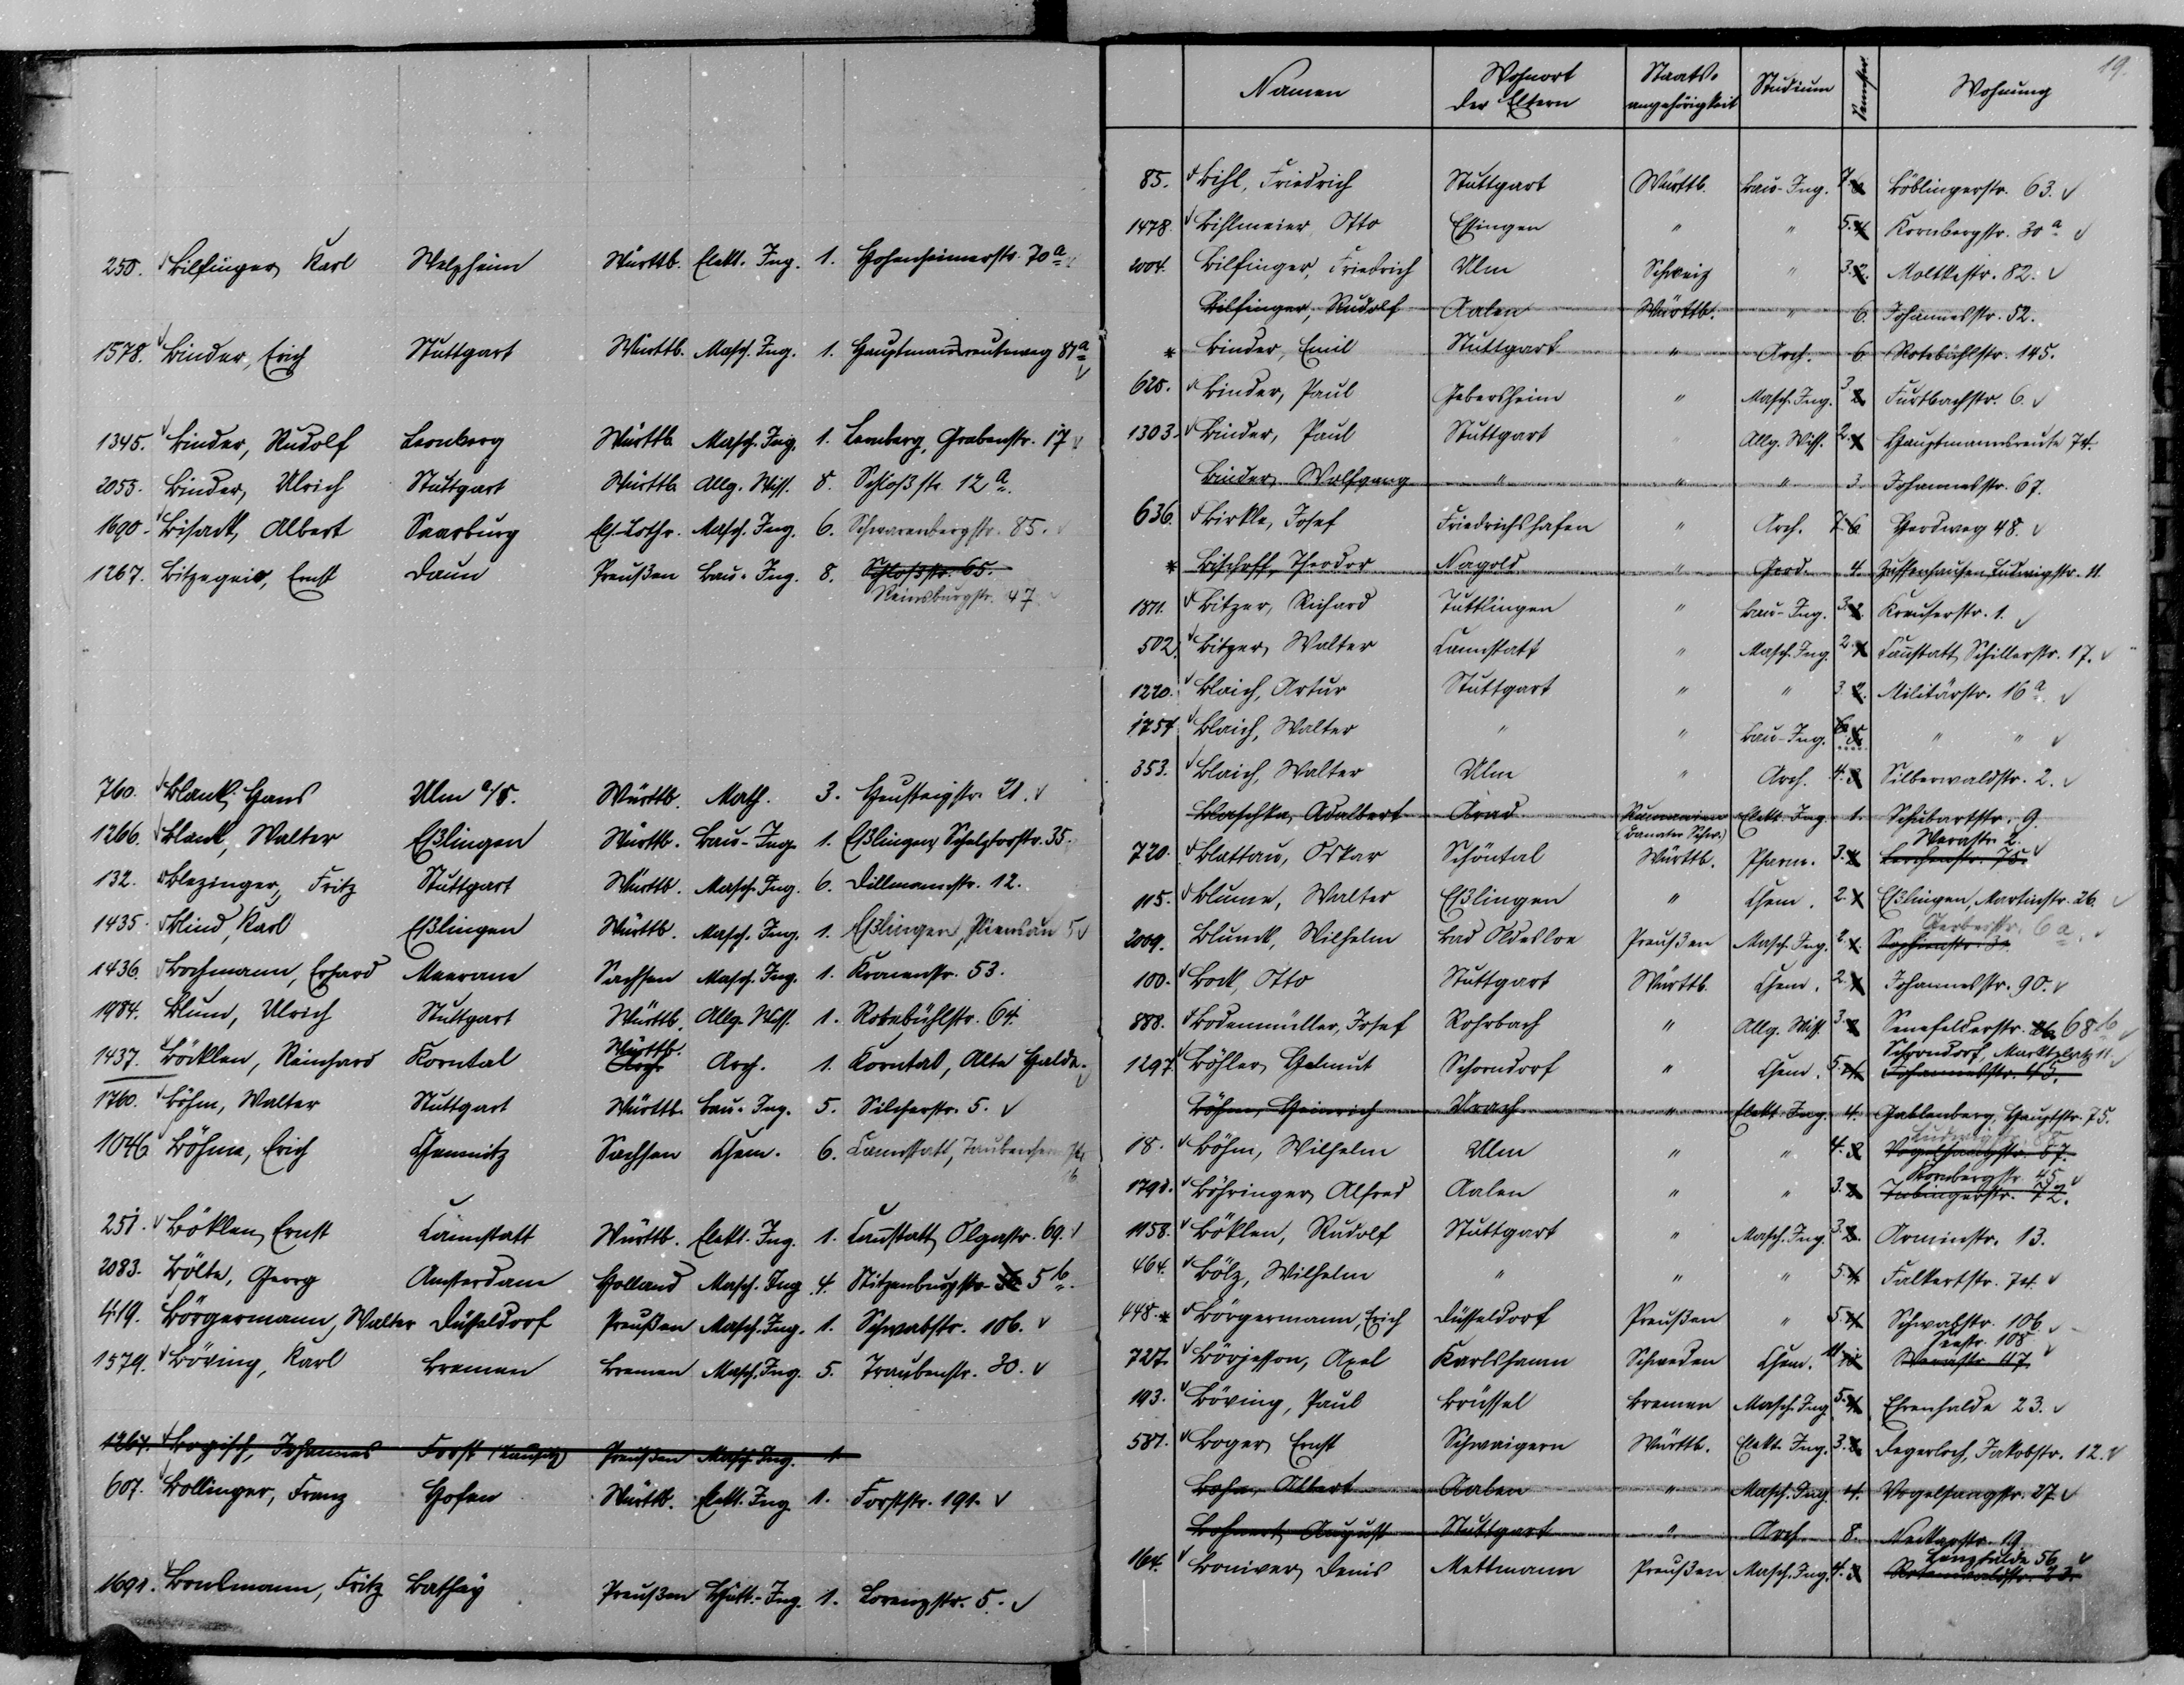 250. Bilfinger, Karl Welzheim Württb. Elekt. Ing. 1. Hohenheimerstr. 70a
1578. Binder, Erich Stuttgart Württb. Masch. Ing. 1. Hauptmannsreuteweg 87a
1345. Binder, Rudolf Leonberg Württb. Masch. Ing. 1. Leonberg, Grabenstr. 17
2053. Binder, Ulrich Stuttgart Württb. Allg. Wiss. 8. Schloßstr. 12a.
1690. Albert Saarburg Els.-Lothr. Masch. Ing. 6. Schwarenbergstr. 85.
1267. Ernst Daun Preußen Bau-Ing. 8. Schloßstr. 65.
Reinsburgstr. 47
760. Blank, Hans Ulm a/D. Württb. Math. 3. Heusteigstr. 21.
1266. Blank, Walter Eßlingen Württb. Bau-Ing. 1. Eßlingen, Schelztorstr. 35.
132. Blezinger, Fritz Stuttgart Württb. Masch. Ing. 6. Dillmannstr. 12.
1435. Blind, Karl Eßlingen Württb. Masch. Ing. 1. Eßlingen, Pliensau 5
1436. Bochmann, Erhard Meerane Sachsen Masch. Ing. 1. Kronenstr. 53.
1984. Blum, Ulrich Stuttgart Württb. Allg. Wiss. 1. Rotebühlstr. 64.
1437. Böcklen, Reinhard Korntal Württb. Arch. 1. Korntal, Alte Halde.
1760. Böhm, Walter Stuttgart Württb. Bau-Ing. 5. Silcherstr. 5.
1046. Böhme, Erich Chemnitz Sachsen Chem. 6. Cannstatt,
251. Böklen, Ernst Cannstatt Württb. Elekt. Ing. 1. Cannstatt, Olgastr. 69.
2083. Bölte, Georg Amsterdam Holland Masch. Ing. 4. Stitzenburgstr. 5b.
419. Börgermann, Walter Düsseldorf Preußen Masch. Ing. 1. Schwabstr. 106.
1579. Böving, Karl Bremen Bremen Masch. Ing. 5. Traubenstr. 30.
1264. Johannes Forst (Lausitz) Preußen Masch. Ing. 1
607. Bollinger, Franz Hofen Württb. Elekt. Ing. 1. Forststr. 191.
1691. Fritz Preußen Hütt.-Ing. 1. Lorenzstr. 5.
19.
Namen Wohnort der Eltern Staatsangehörigkeit Studium Semester Wohnung
85. Bihl, Friedrich Stuttgart Württb. Bau-Ing. 7. 6 Böblingerstr. 63.
1478. Bihlmeier, Otto Essingen " " 5. 4 Kornbergstr. 30a
2004. Bilfinger, Friedrich Ulm Schweiz " 3. 2. Moltkestr. 82.
Bilfinger, Rudolf Aalen Württb. " 6. Johannesstr. 52.
* Binder, Emil Stuttgart " Arch. 6 Rotebühlstr. 145.
625. Binder, Paul Gebersheim " Masch. Ing. 3 2 Furtbachstr. 6.
1303. Binder, Paul Stuttgart " Allg. Wiss. 2. 1 Hauptmannsreute 74.
Binder, Wolfgang " " " 3. Johannesstr. 67.
636. Birkle, Josef Friedrichshafen " Arch. 7. 6 Herdweg 48.
* Bischoff, Theodor Nagold " Geod. 4. Zuffenhausen, Ludwigstr. 11.
1871. Bitzer, Richard Tuttlingen " Bau-Ing. 3. 2. Kreuserstr. 1.
502. Bitzer, Walter Cannstatt " Masch. Ing. 2. 1 Cannstatt, Schillerstr. 17.
1220. Blaich, Artur Stuttgart " " 3. 2. Militärstr. 16a
1754 Blaich, Walter " " Bau-Ing. " "
353. Blaich, Walter Ulm " Arch. 4. 3 Silberwaldstr. 2.
Blaschka, Adalbert Arad Rumänien Elekt. Ing. 1. Schubartstr. 9.
(Banater Schw.)
Werastr. 2.
720. Blattau, Oskar Schöntal Württb. Pharm. 3. 2 Lerchenstr. 75.
115. Blume, Walter Eßlingen " Chem. 2. 1 Eßlingen, Martinstr. 26.
Gerberstr. 6a.
2009. Blunck, Wilhelm Bad Oldesloe Preußen Masch. Ing. 2. 1. Sophienstr.
100. Bock, Otto Stuttgart Württb. Chem. 2. 1 Johannesstr. 90.
888. Bodenmüller, Josef Rohrbach " Allg. Wiss. 3. 2 Senefelderstr. 68b
Schorndorf, Marktplatz 11.
1297 Böhler, Helmut Schorndorf " Chem. 5. 4. Johannesstr. 45.
Böhm, Heinrich Urach " Elekt. Ing. 4. Gablenberg, Hauptstr. 75.
18. Böhm, Wilhelm Ulm " " 4. 3 Vogelsangstr. 57.
Kornbergstr. 45
1798. Böhringer, Alfred Aalen " " 3. 2 Tübingerstr. 72.
1158. Böklen, Rudolf Stuttgart " Masch. Ing. 3. 2. Arminstr. 13.
464. Bölz, Wilhelm " " " 5. 4. Falkertstr. 74.
448. * Börgermann, Erich Düsseldorf Preußen " 5. 4. Schwabstr. 106.
Seestr. 108
727. Börjesson, Axel Karlshamn Schweden Chem. 11 10 Werastr. 117.
193. Böving, Paul Brüssel Bremen Masch. Ing. 5. 4. Ehrenhalde 23.
587. Boger, Ernst Schwaigern Württb. Elekt. Ing. 3. 2. Degerloch, Jakobstr. 12.
Bohn, Albert Aalen " Masch. Ing. 4. Vogelsangstr. 27
Bohnert, August Stuttgart " Arch. 8. Neckarstr. 19.
Lenzhalde 56
164. Boniver, Denis Mettmann Preußen Masch. Ing. 4. 3 Rotenwaldstr. 23.